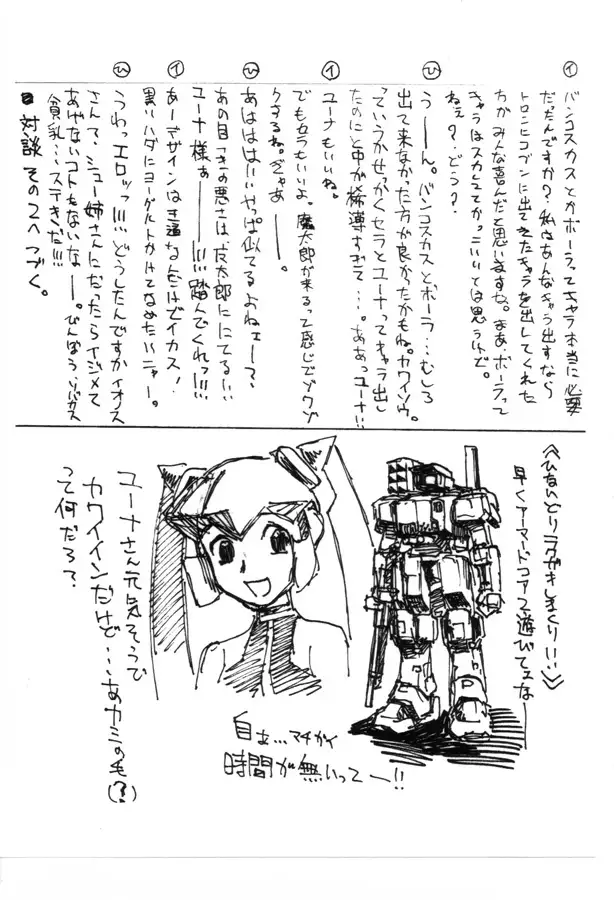 イ
バンコスカスとかボーラってキャラ本当に必要
だったんですか?私はあんなキャラ出すなら
トロンにコブンに出てきたキャラを出してくれた
方がみんな喜んだと思いますな。まあボーラって
キャラはスカしてかっこいいとは思うけど。
ねぇ?どう?
ひ
うーん。バンコスカスとボーラ…むしろ
出て来なかった方が良かったかもね。カワイソウ。
っていうかせっかくセラとユーナってキャラ出し
たのにと中が稀薄すぎて…。ああっユーナ!!
イ
ユーナもいいね。
でもセラもいいよ。魔太郎が来るって感じでゾクゾ
クするね。ぎゃあーー。
ひ
あははは!!やっぱ似てるよねェーー?
あの目つきの悪さは魔太郎ににてる!!
ユーナ様ぁーー!!!踏んでくれっ!!!
イ
あーデザインはき通なんだけどイカス!
黒いハダにヨーグルトかけてなめたいニャー。
ひ
うわっエロッッ!!!どうしたんですかイオス
さんて、シュー姉さんにだったらイジメて
あげないコトもないなーー。びんぼうソバカス
貧乳…ステキだ!!!
■対談その2へつづく。
《べひないどりラクガキしまくり!!》
早くアーマードコア2遊びてェなー
ユーナさん元気そうで
カワイインだけど…あカミのも(?)
って何だろ?
自ま…マチガイ
時間が無いってー!!